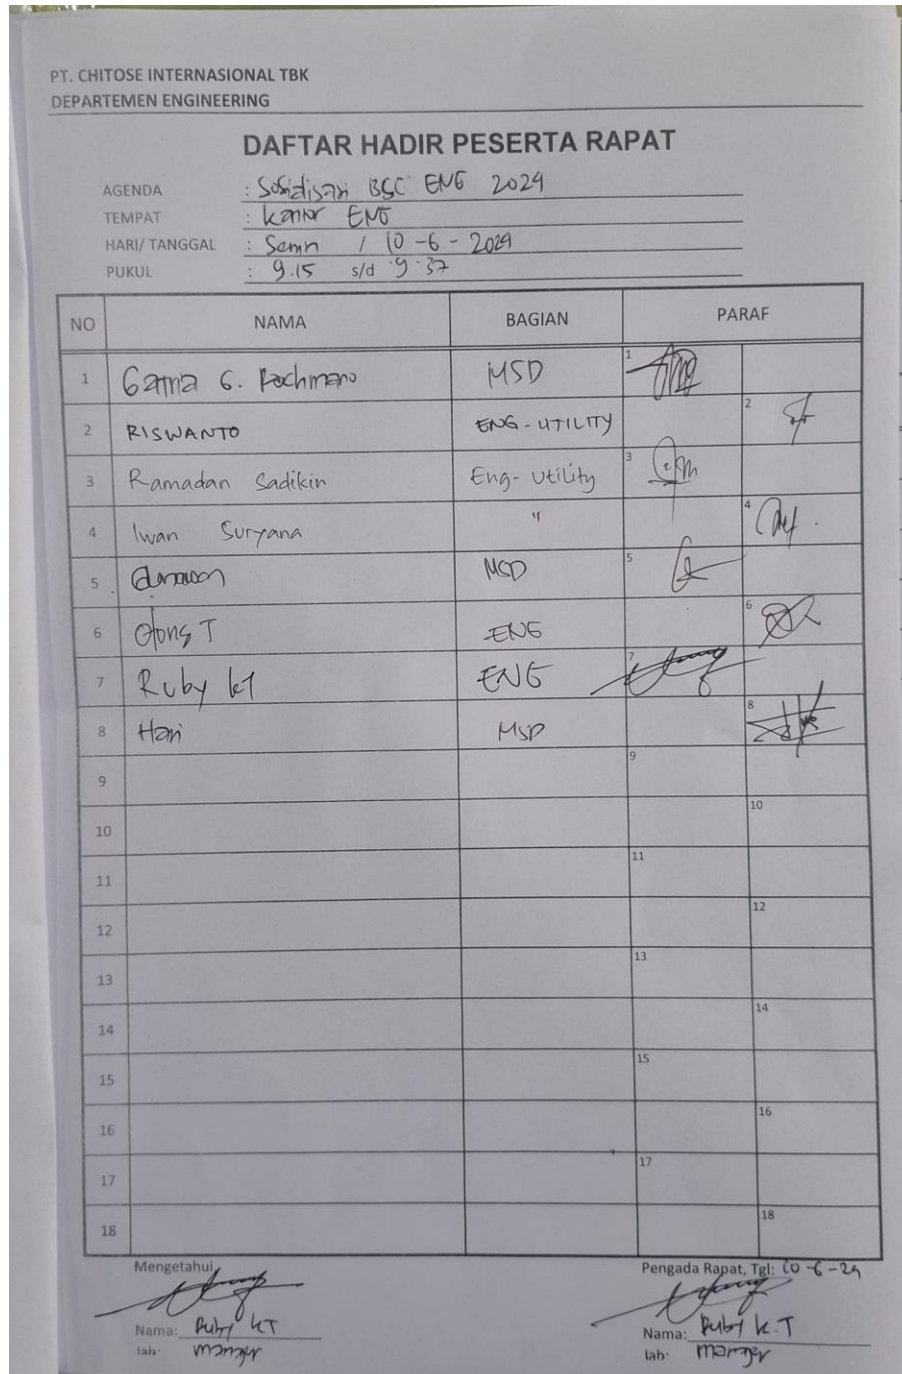 PT. CHITOSE INTERNASIONAL TBK
DEPARTEMEN ENGINEERING
DAFTAR HADIR PESERTA RAPAT
AGENDA : Sosialisasi BSC ENG 2024
TEMPAT : Kantor ENG
HARI/ TANGGAL : Senin / 10-6-2024
PUKUL : 9.15 s/d 9.37
NO NAMA BAGIAN PARAF
1 Gama G. Rochmano MSD 1
2 RISWANTO ENG-UTILITY 2
3 Ramadan Sadikin Eng-Utility 3
4 Iwan Suryana " 4
5 MSD 5
6 Otong T ENG 6
7 Ruby KT ENG 7
8 Hari MSD 8
9 9
10 10
11 11
12 12
13 13
14 14
15 15
16 16
17 17
18 18
Mengetahui, Pengada Rapat, Tgl: 10-6-24
Nama: Ruby KT Nama: Ruby K.T
Jab: manager Jab: manager